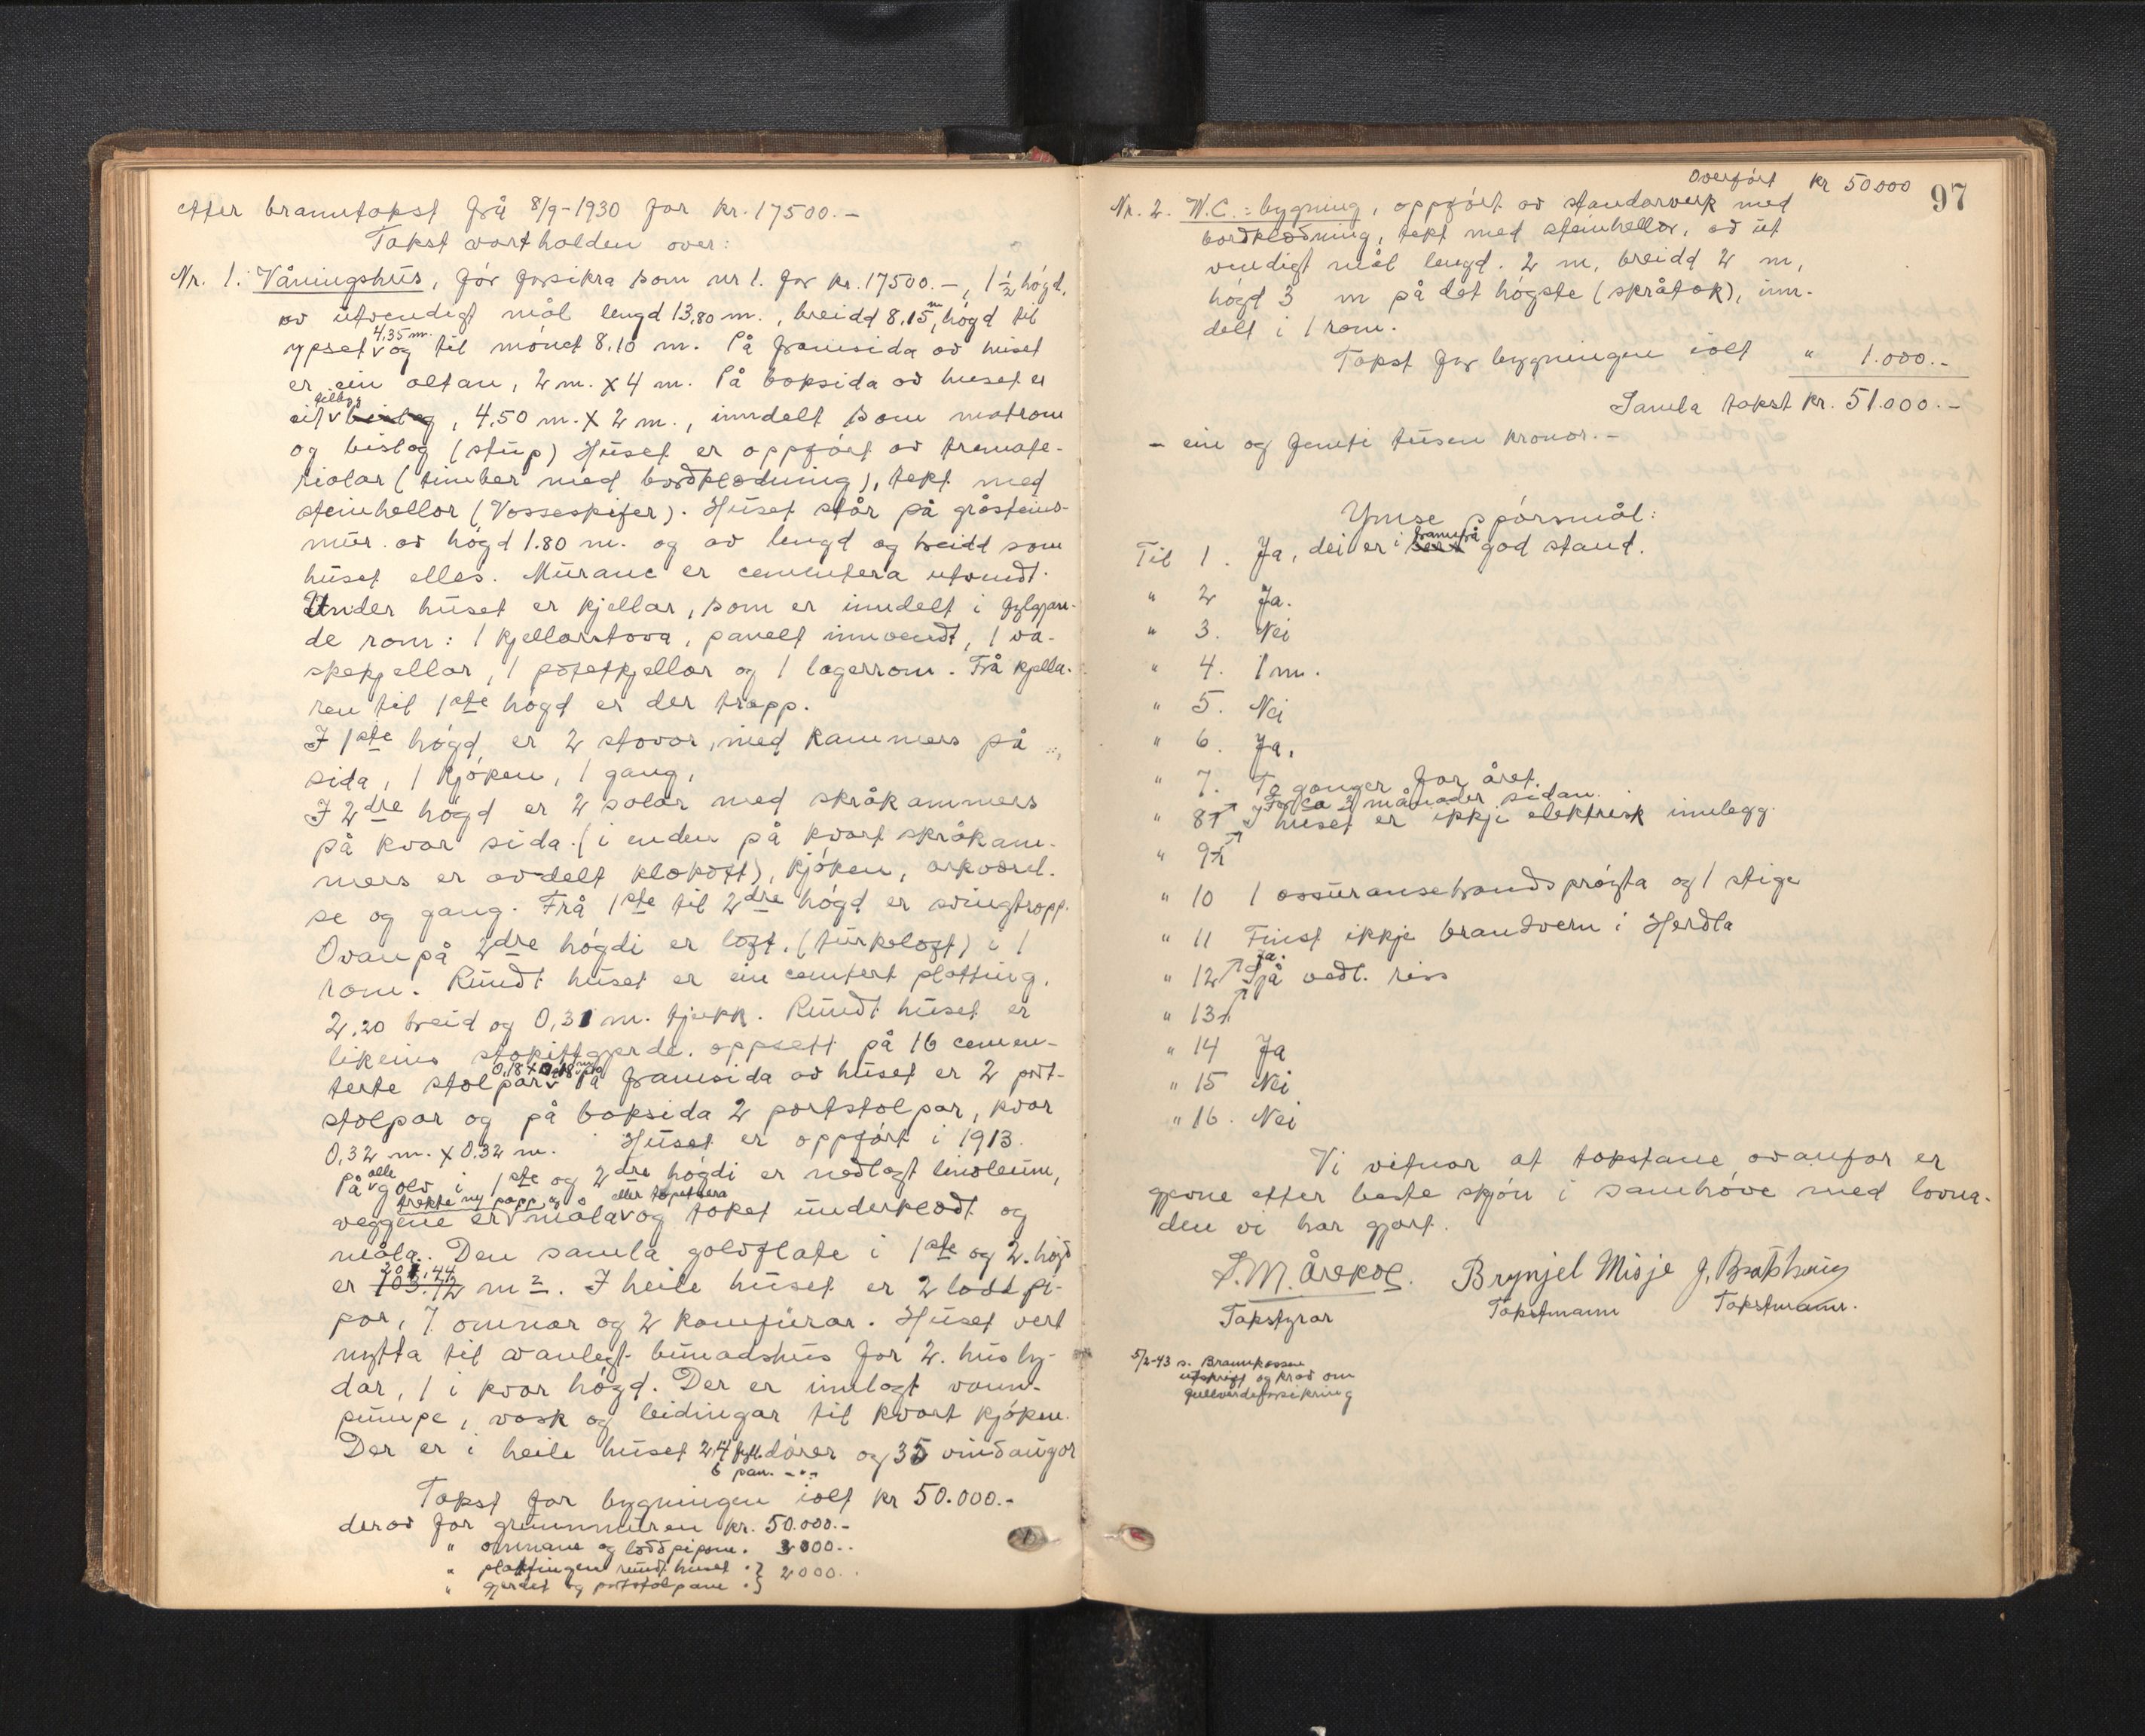 etter branntakst frå 8/9-1930 for kr. 17500.-
Takst vart halden over:
Nr. 1. Våningshus, før forsikra som nr 1. for kr. 17500.-, 1 1/2 høgd,
av utvendigt mål lengd 13,80 m., breidd 8,15 m, høgd til
ypset 4,35 m. og til mønet 8,10 m. På framsida av huset
er ein altan, 2 m. x 4 m. På baksida av huset er
eit tilbygg, 4,50 m. x 2 m., inndelt som matrom
og bislag (stup) Huset er oppført av tremate-
rialar (timber med bordklædning), tekt med
steinhellor (Vosseskifer). Huset står på gråsteins-
mur av høgd 1.80 m. og av lengd og breidd som
huset elles. Murane er cementera utvendt.
Under huset er kjellar, som er inndelt i fylgjan-
de rom: 1 kjellarstova, panelt innvendt, 1 va-
skekjellar, 1 potetkjellar og 1 lagerrom. Frå kjella-
ren til 1ste høgd er der trapp.
I 1ste høgd er 2 stovor, med kammers på
sida, 1 kjøken, 1 gang,
I 2dre høgd er 2 salar med skråkammers
på kvar sida. (i enden på kvart skråkam-
mers er avdelt klokott), kjøken, arkværel-
se og gang. Frå 1ste til 2dre høgd er svingtrapp.
Ovanpå 2dre høgdi er loft. (turkeloft) i 1
rom. Rundt huset er ein cemtert platting,
2,20 breid og 0,31 m. tjukk. Rundt huset er
likeins stakittgjerde. oppsett på 16 cemen-
terte stolpar 0,18 x 0,18 m. På framsida av huset er 2 port-
stolpar og på baksida 2 portstolpar, kvar
0,32 m. x 0.32 m. Huset er oppført i 1913.
På alle golv i 1ste og 2dre høgdi er nedlagt linoleum,
veggene er trekte m/ papp og måla eller tapetsera og taket underklædt og
måla. Den samla golvflate i 1ste og 2. høgd
er 201,44 m2. I heile huset er 2 loddpi-
por, 7 omnar og 2 komfurar. Huset vert
nytta til vanlegt bunadshus for 2. husly-
dar, 1 i kvar høgd. Der er innlagt vann-
pumpe, vask og leidingar til kvart kjøken.
Der er i heile huset 24 fyll. dører og 35 vindaugor
6 pan. -"-
Takst for bygningen ialt kr 50.000.-
derav for grunnmuren kr. 50.000.-
" omnane og loddpipone. 3000..
" plattingen rundt huset .} 2000..
" gjerdet og portstolpane .}
97
Overført kr 50000
Nr. 2. W.C.=bygning, oppført av standarverk med
bordklædning, tekt med steinhellor, av ut
vendigt mål lengd. 2 m, breidd 2 m,
høgd 3 m på det høgste (skråtak), inn-
delt i 1 rom.
Takst for bygningen ialt " 1.000.-
Samla takst kr. 51.000.-
- ein og femti tusen kronor.-
Ymse spørsmål:
Til 1. Ja, dei er i framifrå god stand.
" 2 Ja.
" 3. Nei
" 4. 1 m.
" 5. Nei
" 6. Ja.
" 7. To gonger for året.
For ca 2 månader sidan.
" 8 I huset er ikkje elektrisk innlegg.
" 9
" 10 1 assuransebrandsprøyta og 1 stige
" 11 Finst ikkje brandvern i Herdla
Ja.
" 12 Sjå vedl. riss
" 13
" 14 Ja
" 15 Nei
" 16. Nei
Vi vitnar at takstane ovanfor er
gjevne etter beste skjøn i samhøve med lovna-
den vi har gjort.
Brynjel Misje
Takstyrar Takstmann Takstmann.
5/2-43 s. Brannkassen
utskrift og krav om
gullverdeforsikring